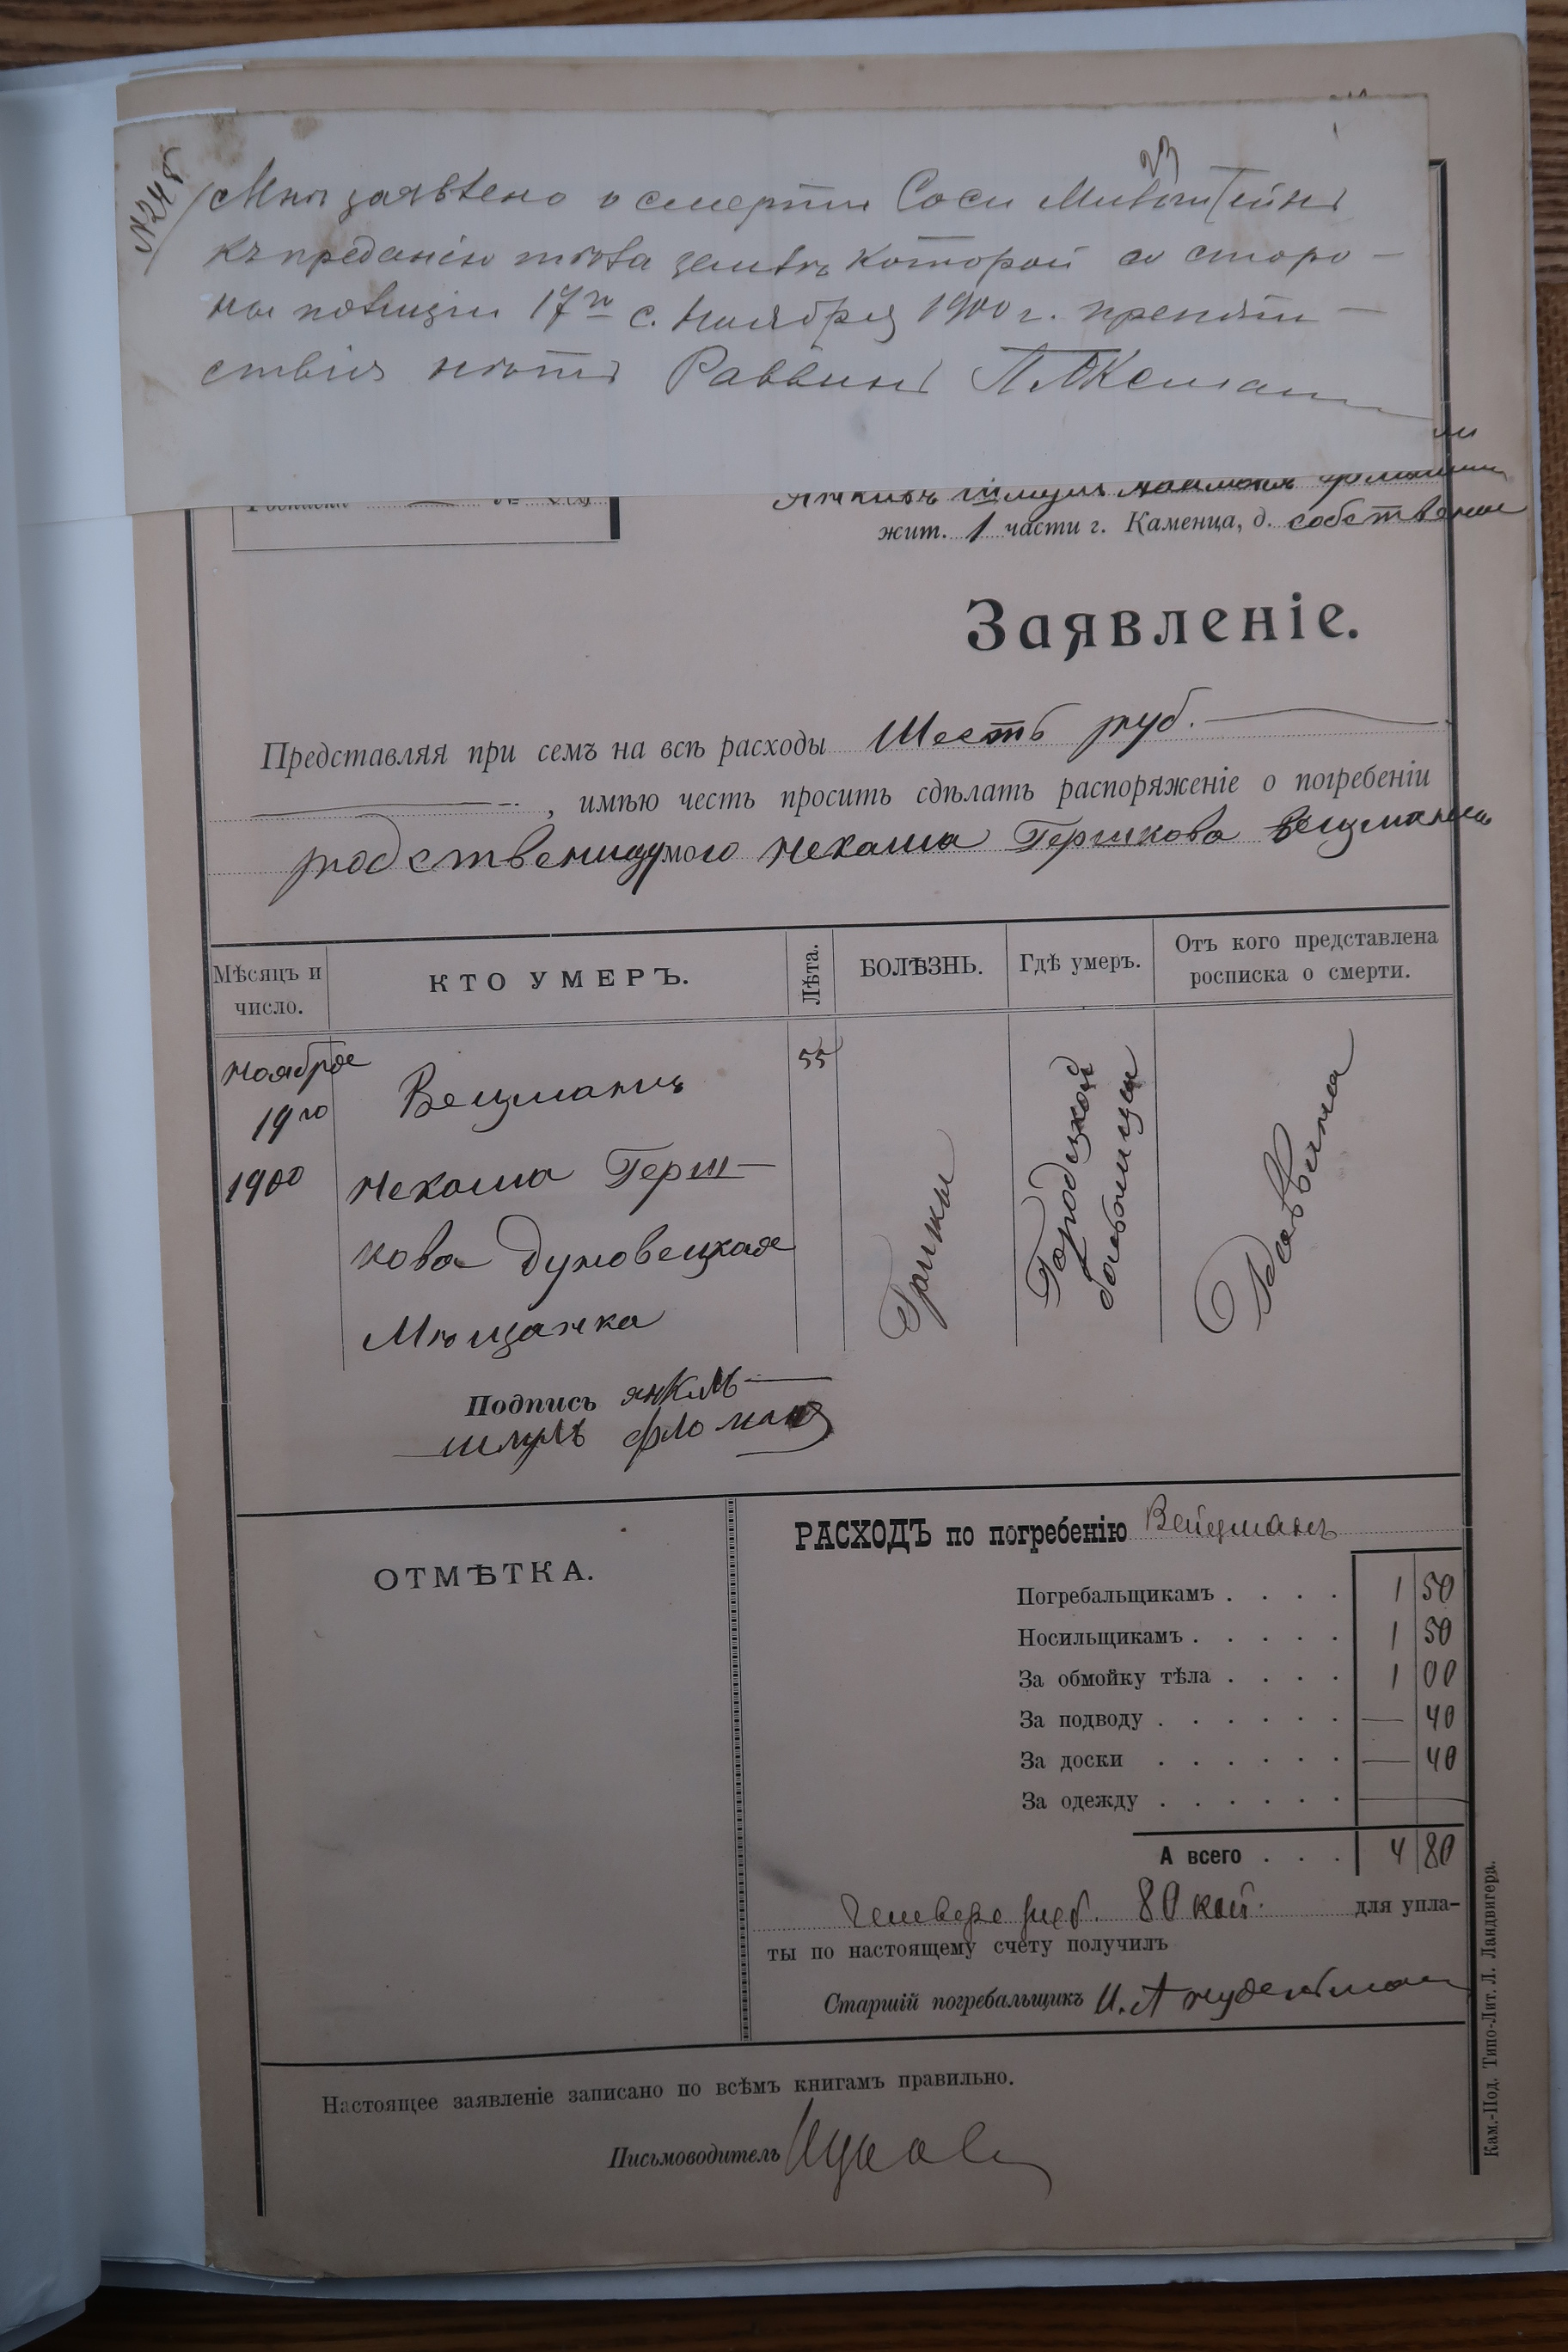 № 248
Мнѣ заявлено о смерти Соси Мильштейнъ
къ преданію тѣла землѣ которой со сторо-
ны полиціи 17го с. Ноября 1900 г. препят-
ствія нѣтъ Раввинъ
жит. 1 части г. Каменца, д. собствен
Заявленіе.
Представляя при семъ на всѣ расходы Шесть руб.
, имѣю честь просить сдѣлать распоряженіе о погребеніи
родственицу моего Нехама Гершкова Вецманъ
Мѣсяцъ и число.
КТО УМЕРЪ.
Лѣта.
БОЛѢЗНЬ.
Гдѣ умеръ.
Отъ кого представлена росписка о смерти.
Нояброе
19го
1900
Вецманъ
Нехама Герш-
кова Дуновецкая
Мѣщанка
55
Грижи
Городецкой
больници
Раввина
Подпись Янкль
Шмуль Фломанъ
ОТМѢТКА.
РАСХОДЪ по погребенію Вейцманъ
Погребальщикамъ . . . . 1 50
Носильщикамъ . . . . . 1 50
За обмойку тѣла . . . . 1 00
За подводу . . . . . . — 40
За доски . . . . . . — 40
За одежду . . . . . . —
А всего . . . 4 80
Четверо руб. 80 коп. для упла-
ты по настоящему счету получилъ
Старшій погребальщикъ И. А Нудельман
Настоящее заявленіе записано по всѣмъ книгамъ правильно.
Письмоводитель
Кам.-Под. Типо-Лит. Л. Ландвигера.